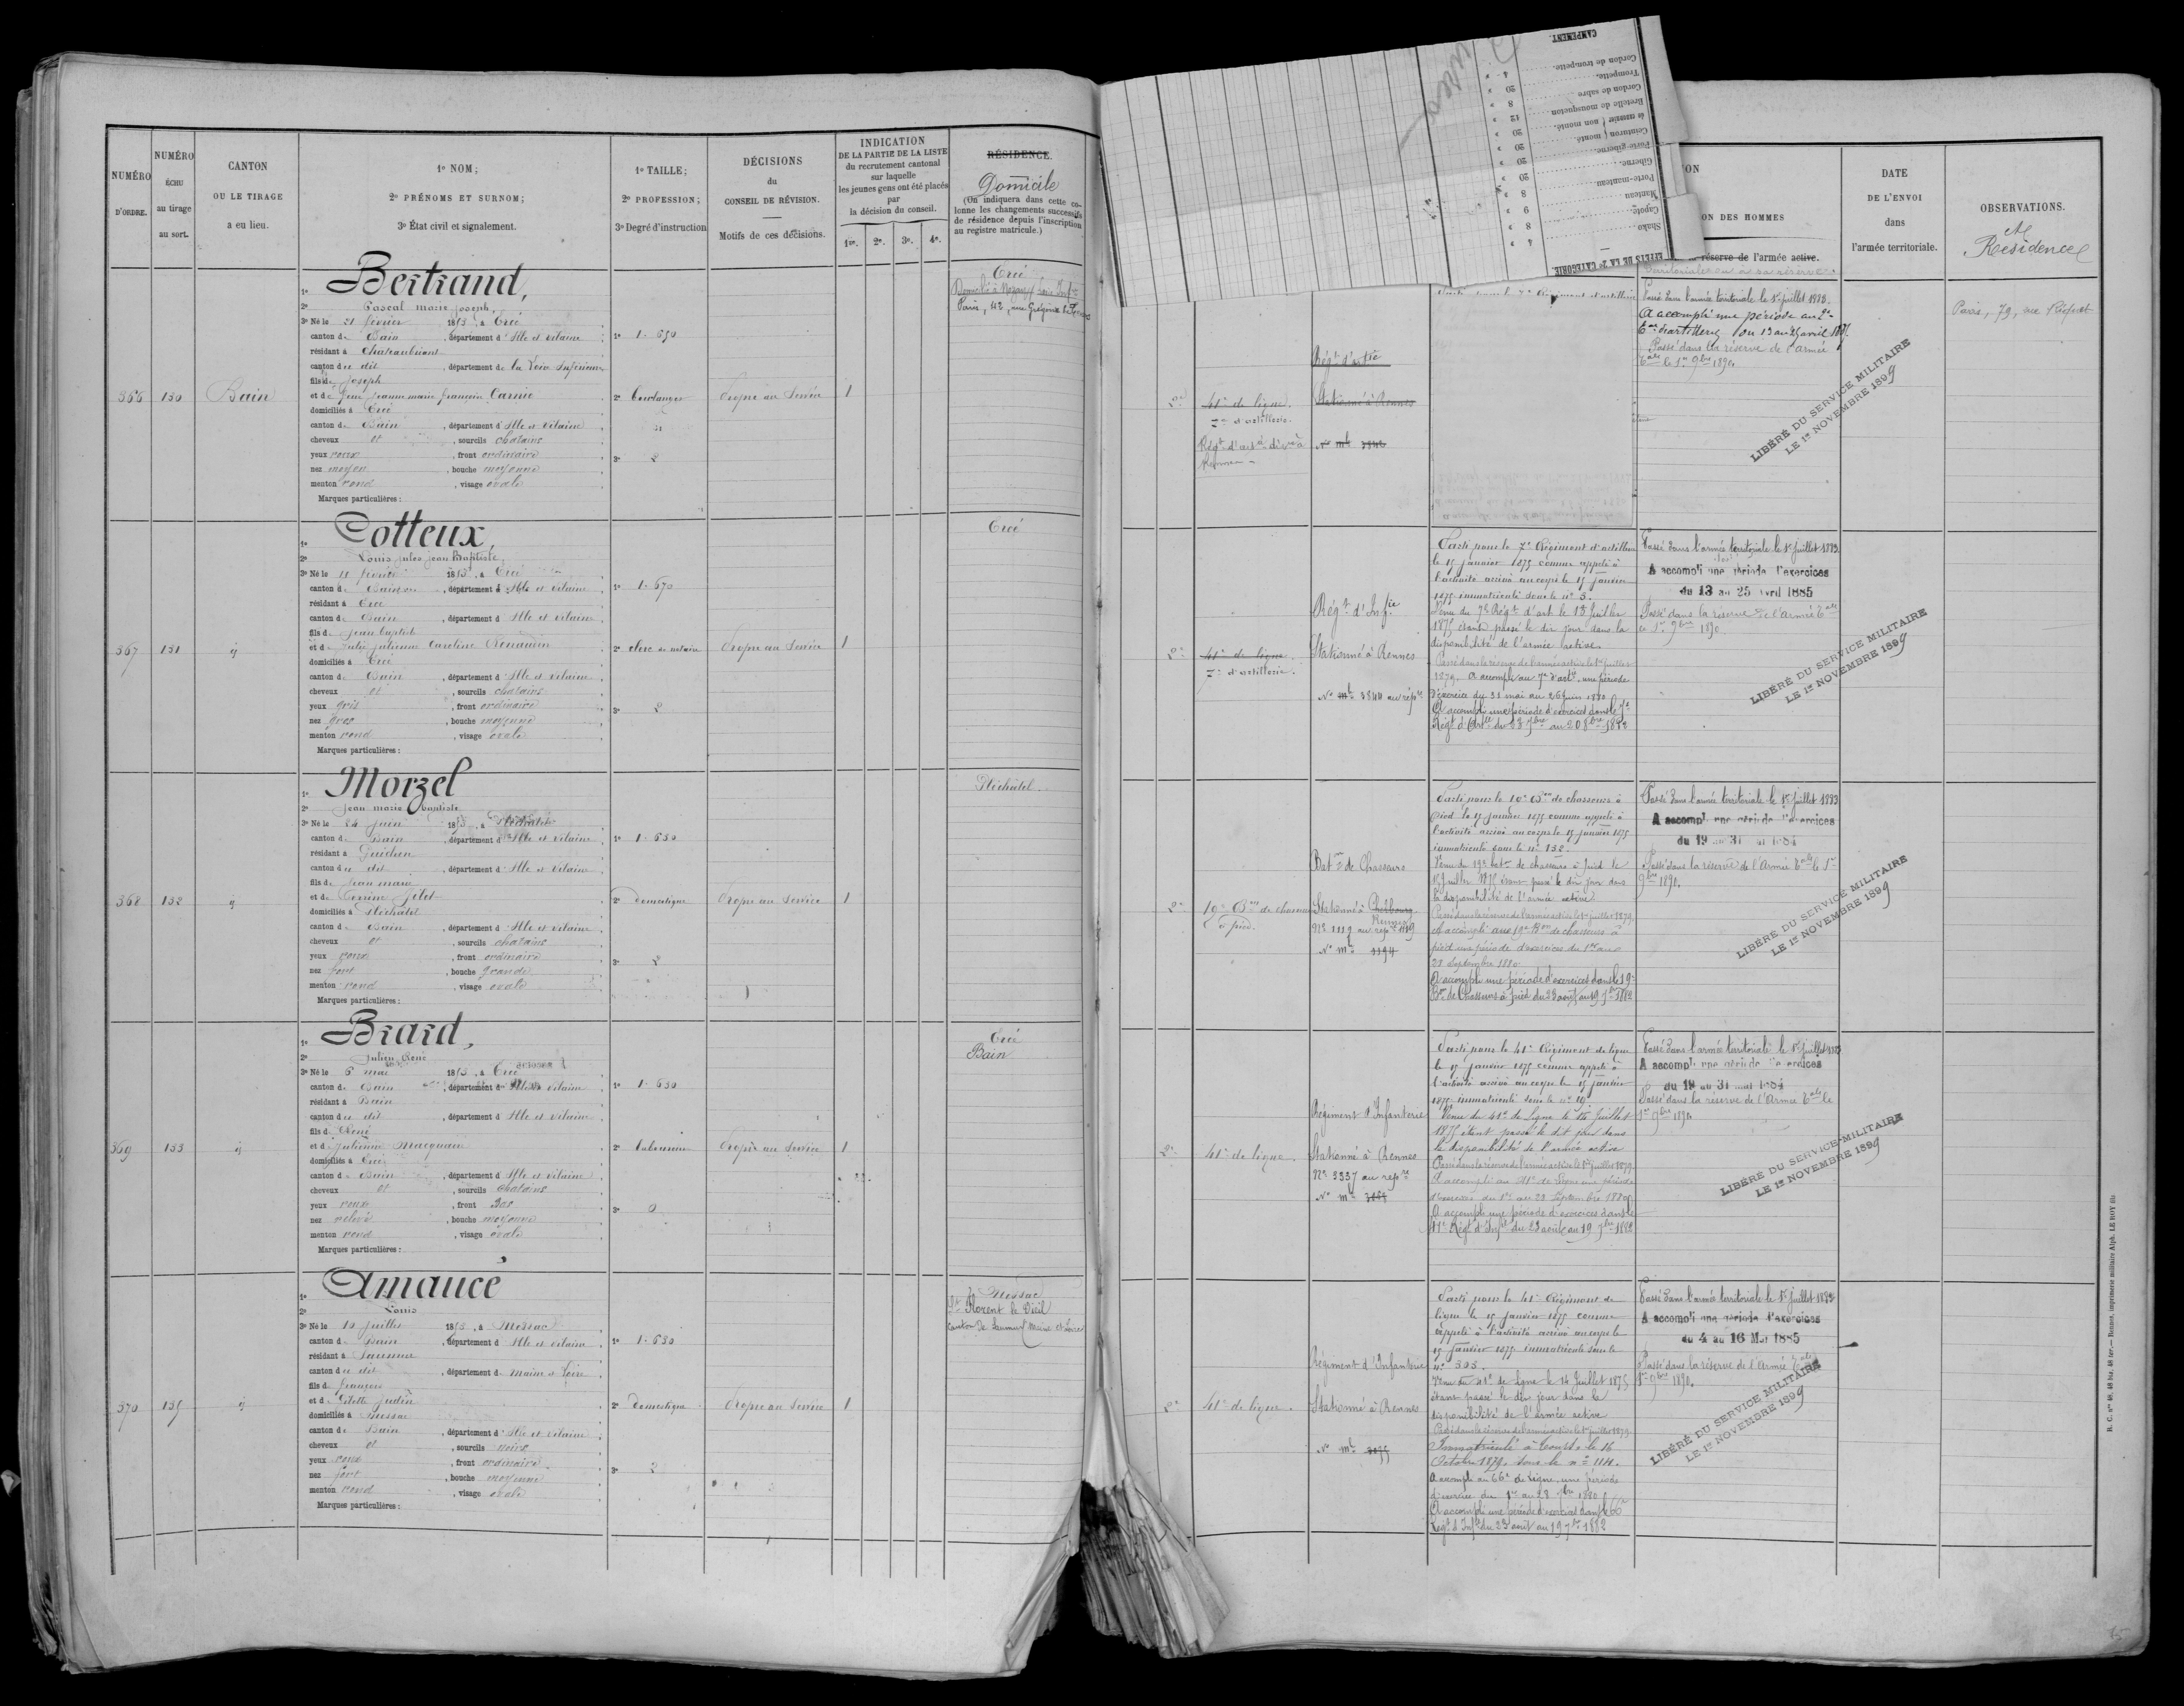 NUMÉRO
D'ORDRE.
NUMÉRO
ÉCHU
au tirage
au sort.
CANTON
OU LE TIRAGE
a eu lieu.
1º NOM;
2º PRÉNOMS ET SURNOM;
3º État civil et signalement.
1º TAILLE;
2º PROFESSION;
3º Degré d'instruction
DÉCISIONS
du
CONSEIL DE RÉVISION.
Motifs de ces décisions.
INDICATION
DE LA PARTIE DE LA LISTE
du recrutement cantonal
sur laquelle
les jeunes gens ont été placés
par
la décision du conseil.
1re. 2e. 3e. 4e.
RÉSIDENCE.
Domicile
(On indiquera dans cette co-
lonne les changements successifs
de résidence depuis l'inscription
au registre matricule.)
366 130 Bain
1º Bertrand,
2º Pascal marie joseph,
3º Né le 21 février 1853, à Ercé
canton de Bain, département d'Ille et vilaine
résidant à Chateaubriant
canton du dit, département de la Loire Inférieure
fils de Joseph
domiciliés à Ercé
canton de Bain, département d'Ille et vilaine
cheveux et, sourcils chatains
yeux roux, front ordinaire
nez moyen, bouche moyenne
menton rond, visage ovale
Marques particulières :
1º 1.650
2º boulanger
3º 2
Propre au Service 1
Ercé
367 131 ij
1º Cotteux,
2º Louis jules jean Baptiste,
3º Né le 11 février 1853, à Ercé
canton de Bain, département d'Ille et vilaine
résidant à Ercé
canton de Bain, département d'Ille et vilaine
fils de jean baptiste
et de Julie julienne Caroline Renaudin
domiciliés à Ercé
canton de Bain, département d'Ille et vilaine
cheveux et, sourcils chatains
yeux gris, front ordinaire
nez gros, bouche moyenne
menton rond, visage ovale
Marques particulières :
1º 1.670
2º clerc de notaire
3º 2
Propre au Service 1
Ercé
368 132 ij
1º Morzel
2º Jean marie baptiste
3º Né le 24 juin 1853, à Pléchatel
canton de Bain, département d'Ille et vilaine
résidant à Guichen
canton du dit, département d'Ille et vilaine
fils de Jean marie
domiciliés à Pléchatel
canton de Bain, département d'Ille et vilaine
cheveux et, sourcils chatains
yeux roux, front ordinaire
nez fort, bouche grande
menton rond, visage ovale
Marques particulières :
1º 1.630
2º domestique
3º 2
Propre au Service 1
Pléchatel.
369 133 ij
1º Briard,
2º Julien René
3º Né le 6 mai 1853, à Ercé
canton de Bain, département d'Ille et vilaine
résidant à Bain
canton du dit, département d'Ille et vilaine
fils de René
et de Julienne Macquain
domiciliés à Ercé
canton de Bain, département d'Ille et vilaine
cheveux et, sourcils chatains
yeux roux, front bas
nez relevé, bouche moyenne
menton rond, visage ovale
Marques particulières :
1º 1.630
2º laboureur
3º 0
Propre au Service 1
Ercé
Bain
370 135 ij
1º Amaucé
2º Louis
3º Né le 10 juillet 1853, à Messac
canton de Bain, département d'Ille et vilaine
résidant à Saumur
canton du dit, département de Maine et Loire
fils de françois
domiciliés à Messac
canton de Bain, département d'Ille et vilaine
cheveux et, sourcils noirs
yeux roux, front ordinaire
nez fort, bouche moyenne
menton rond, visage ovale
Marques particulières :
1º 1.630
2º domestique
3º 2
Propre au Service 1
Messac
St Florent le Vieil
canton de Saumur Maine et Loire
EFFETS DE LA 2e CATÉGORIE.
Shako 4 »
Capote 8 »
Manteau 9 »
Porte-manteau 8 »
Giberne 20 »
Porte-giberne 20 »
Ceinturon monté 20 »
non monté 12 »
Bretelle de mousqueton 8 »
Cordon de sabre 20 »
Trompette 4 »
Cordon de trompette
CAMPEMENT.
ON DES HOMMES
réserve de l'armée active.
DATE
DE L'ENVOI
dans
l'armée territoriale.
OBSERVATIONS.
et
Résidence
41e de ligne.
7e d'artillerie.
Stationné à Rennes
Passé dans l'armée territoriale le 1er juillet 1883.
A accompli une période au
d'artillerie du 13 au 25 avril 1885
Passé dans la réserve de l'armée
tale le 1er 9bre 1890
LIBÉRÉ DU SERVICE MILITAIRE
LE 1er NOVEMBRE 1899
Paris, 79, rue Riquet
41e de ligne
7e d'artillerie.
Régt d'Infie
Stationné à Rennes
Parti pour le 7e Régiment d'artillerie
le 15 janvier 1875 comme appelé à
l'activité arrivé au corps le 15 janvier
1875 immatriculé sous le nº 3.
Venu du 7e Régt d'art. le 15 Juillet
1875 étant passé le dit jour dans la
disponibilité de l'armée active
Passé dans la réserve de l'armée active le 1er juillet
1879. A accompli au 7e d'artie une période
d'exercice du 31 mai au 26 juin 1880
A accompli une période d'exercices dans le 7e
Passé dans l'armée territoriale le 1er juillet 1883.
A accompli une période d'exercices
du 13 au 25 avril 1885
Passé dans la réserve de l'Armée tale
le 1er 9bre 1890
LIBÉRÉ DU SERVICE MILITAIRE
LE 1er NOVEMBRE 1899
19e Bon de chasseurs
à pied.
Baton de Chasseurs
Stationné à Cherbourg
Rennes
Parti pour le 19e Bon de chasseurs à
pied le 15 janvier 1875 comme appelé à
l'activité arrivé au corps le 15 janvier 1875
immatriculé sous le nº 132.
Venu du 19e baton de chasseurs à pied le
15 Juillet 1875 étant passé le dit jour dans
la disponibilité de l'armée active
Passé dans la réserve de l'armée active le 1er juillet 1879
A accompli au 19e Bon de chasseurs à
pied une période d'exercices du 1er au
28 Septembre 1880
A accompli une période d'exercices dans le 19e
Bon de Chasseurs à pied du 23 août au 19 7bre 1882
Passé dans l'armée territoriale le 1er juillet 1883
A accompli une période d'exercices
du 19 au 31 mai 1884
Passé dans la réserve de l'Armée tale le 1er
9bre 1890.
LIBÉRÉ DU SERVICE MILITAIRE
LE 1er NOVEMBRE 1899
41e de ligne.
Régiment d'Infanterie
Stationné à Rennes
Nº 3337 au repre
Parti pour le 41e Régiment de ligne
le 15 janvier 1875 comme appelé à
l'activité arrivé au corps le 15 janvier
Venu du 41e de Ligne le 15 Juillet
1875 étant passé le dit jour dans
la disponibilité de l'armée active
Passé dans la réserve de l'armée active le 1er juillet 1879
A accompli au 41e de Ligne une période
d'exercices du 1er au 28 Septembre 1880
A accompli une période d'exercices dans le
41e Régt d'Infie du 23 août au 19 7bre 1882
Passé dans l'armée territoriale le 1er juillet 1883
A accompli une période d'exercices
du 19 au 31 mai 1884
Passé dans la réserve de l'Armée tale le
1er 9bre 1890
LIBÉRÉ DU SERVICE MILITAIRE
LE 1er NOVEMBRE 1899
41e de ligne.
Régiment d'Infanterie
Stationné à Rennes
Parti pour le 41e Régiment de
ligne le 15 janvier 1875 comme
appelé à l'activité arrivé au corps le
15 janvier 1875 immatriculé sous le
nº 303.
Venu du 41e de Ligne le 14 Juillet 1875
étant passé le dit jour dans la
disponibilité de l'armée active
Passé dans la réserve de l'armée active le 1er juillet 1879
Immatriculé à Tours le 16
Octobre 1879, sous le nº 1114.
A accompli au 66e de Ligne, une période
d'exercice du 1er au 28 7bre 1880
A accompli une période d'exercices dans le 66e
Régt d'Infie du 23 août au 19 7bre 1882
Passé dans l'armée territoriale le 1er juillet 1883
A accompli une période d'exercices
du 4 au 16 Mai 1885
Passé dans la réserve de l'Armée tale
1er 9bre 1890.
LIBÉRÉ DU SERVICE MILITAIRE
LE 1er NOVEMBRE 1899
Rennes, imprimerie militaire Alph. LE ROY fils